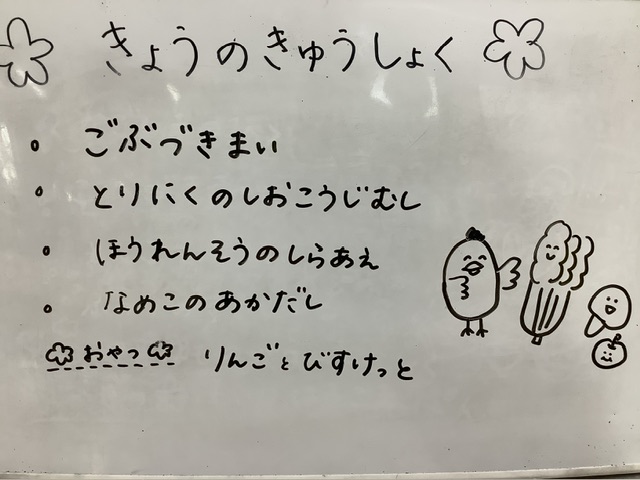 きょうのきゅうしょく
・ごぶづきまい
・とりにくのしおこうじむし
・ほうれんそうのしらあえ
・なめこのあかだし
おやつ りんごとびすけっと